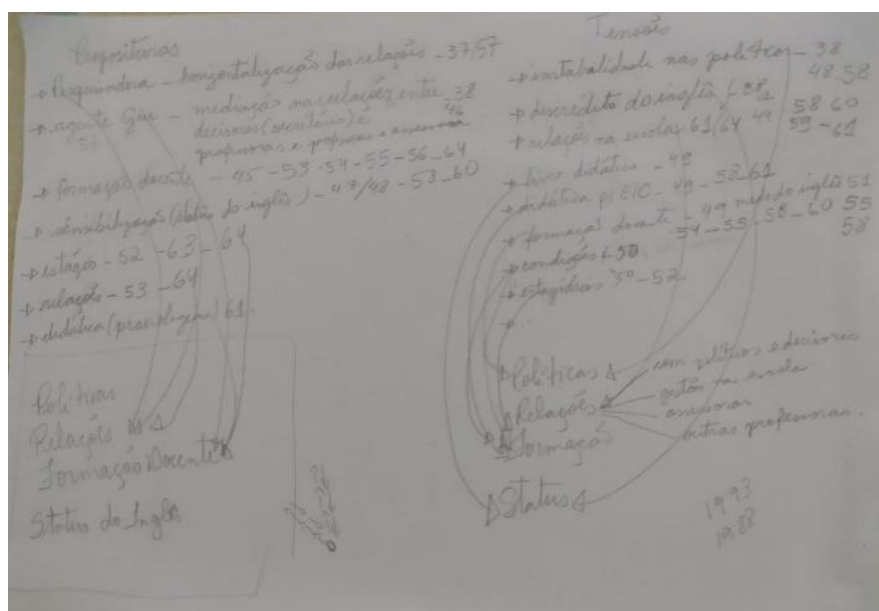 Propositivas
→ Pesquisadora - horizontalização das relações - 37/57
→ agente Giu - mediação na relações entre 38
decisores (secretário) e 46
professoras e professoras e assessoras
→ formação docente - 45-53-54-55-56-64
→ sensibilização (status do inglês) - 47/48-58-60
→ estágio - 52-63-64
→ relações - 53-64
→ didática 61.
Políticas
Relações
Formação Docente
Status do Inglês
Tensões
→ instabilidade nas políticas - 38
48-58
→ descrédito do inglês 58 60
→ relações na escolas 61/64 49 59-61
→ livro didático - 49
→ didática p/ EIC - 49-58-61
→ formação docente - 49 medo do inglês 51
54-55-58-60 55
58
→ condições 50
→ estagiários 50-52
→ .
Políticas
Relações
com políticos e decisores
gestão na escola
assessoras
outras professoras.
Formação
Status
1993
1988